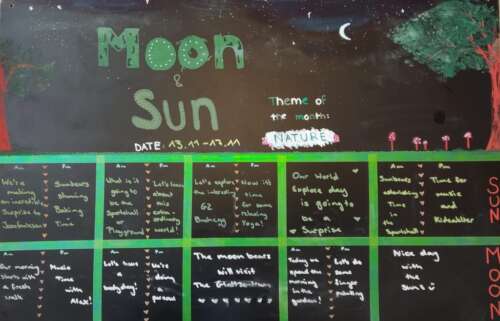 Moon
&
Sun
DATE: 13.11-17.11
Theme of
the month:
NATURE
Am Pm
We're
making
an incredible
Surprise to
Sunbears
sharing
Baking
Time
Am Pm
What is it
going to
be the
Sportshall
or
Playground
Let's learn
about
this
extra-
ordinary
world!
Am Pm
Let's explore
the interesting
GZ
Buchegg
Now it's
time
for some
relaxing
Yoga!
Our World
Explore day
is going to
be a
Surprise
Am Pm
Sunbears
Time
in the
Sportshall
Time for
music and
SUN
Am Pm
Our morning
starts with
a fresh
walk
Music
Time
with
Alex!
Let's have
a
babyday!
We're
doing
a
The moon bears
will visit
The
Am Pm
Today we
spend the
morning
in the
garden!
Let's do
some
finger
painting
Nice day
with
the
Suns
MOON